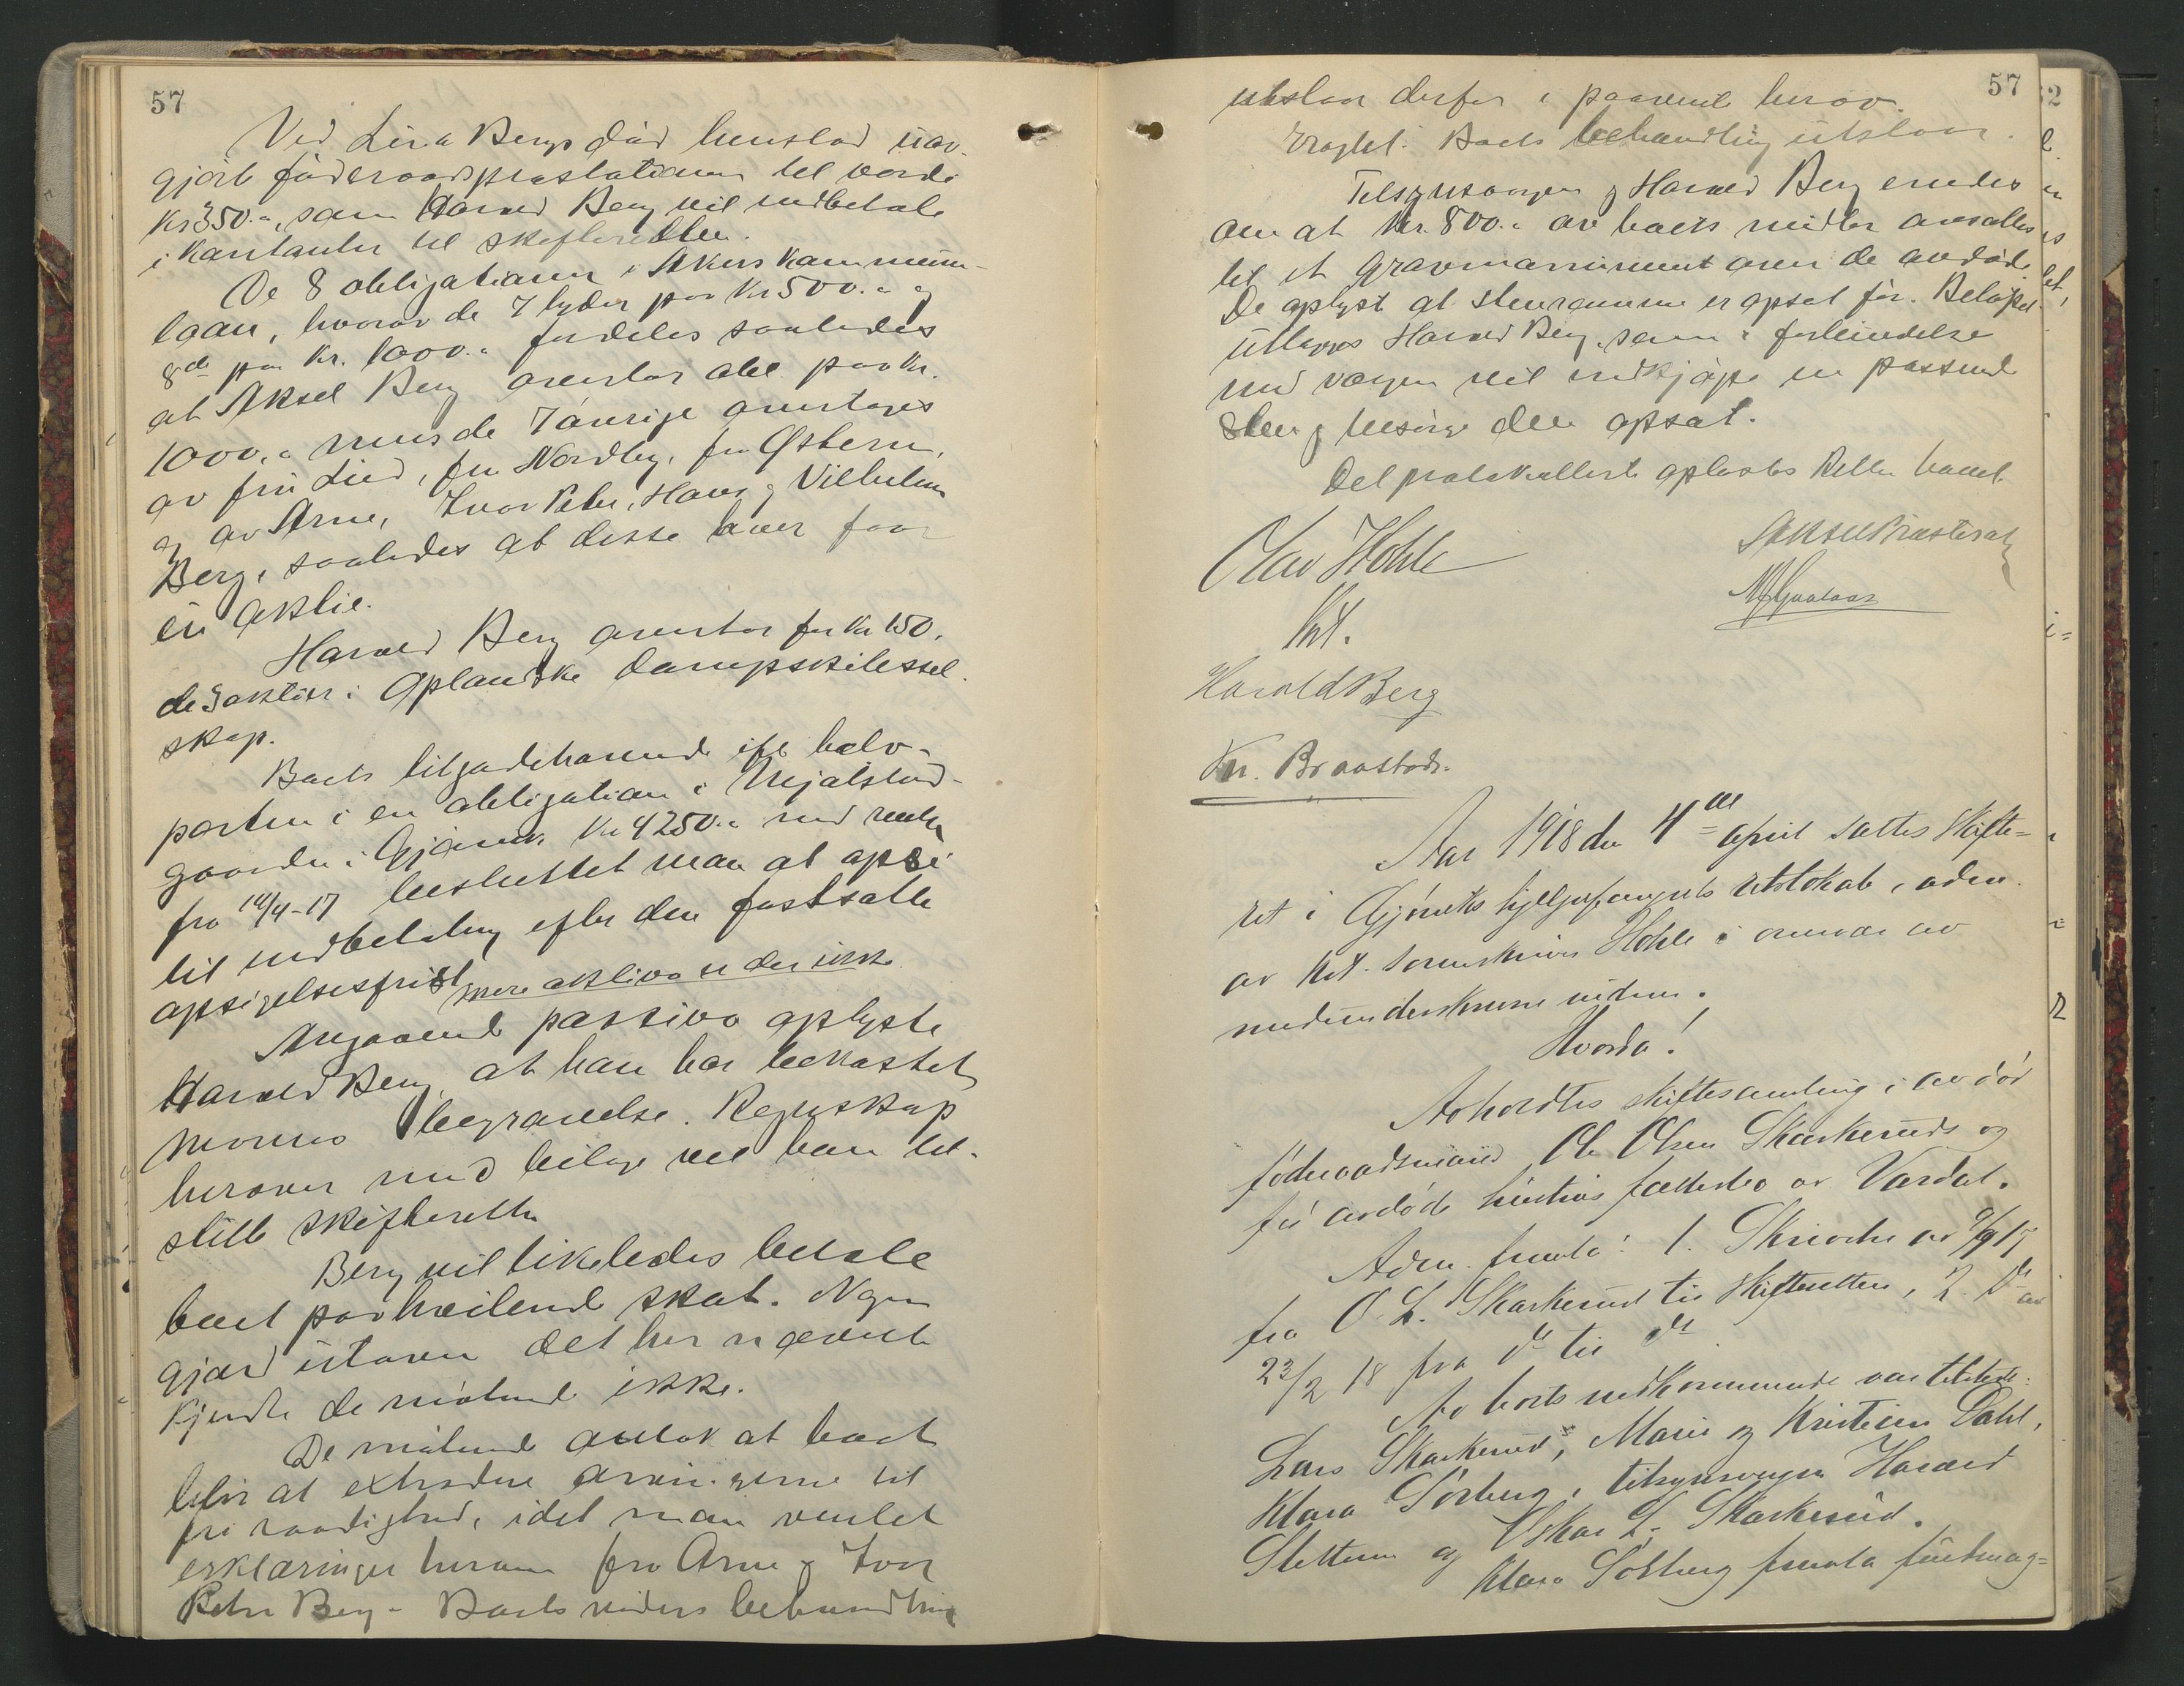 57
Ved Lina Bergs död henstod uav-
gjort föderaadspræstationer til værdi
Kr 350.-, som Harald Berg vil indbetale
i kontanter til skifteretten.
De 8 obligationer i Akers kommune-
laan, hvorav de 7 lyder paa Kr 500.- og
8de paa Kr. 1000.- fordeles saaledes
at Aksel Berg overtar den paa Kr.
1000.- mens de 7 övrige overtages
av fru Lied, fru Nordby, fru Østern,
og av Arne, Ivar Peter, Hans og Vilhelm
Berg, saaledes at disse hver faar
en aktie.
Harald Berg overtar for Kr 150.
de 3 aktier i Oplandske dampskibssel-
skap.
Boets tilgodehavende ifl halv-
parten i en obligation i Mjølstad-
gaarden i Gjøvik Kr 4250.- med renter
fra 14/4-17 besluttet man at opsi
til indbetaling efter den fastsatte
opsigelsesfrist. Mere aktiva er der ikke.
Angaaende passiva oplyste
Harald Berg, at han har bekostet
morens begravelse. Regnskap
herover med bilage vil han til-
stille skifteretten
Berg vil likeledes betale
boet paahvilende skat. Nogen
gjæld utover det her nævnte
kjendte de mötende ikke.
De mötende antok at boet
blir at extradere arvingerne til
fri raadighed, idet man ventet
erklæringer herom fra Arne og Ivar
Peter Berg - Boets videre behandling
57
utstaar derfor i paavente herav.
Eragtet: Boets behandling utstaar.
Tilsynsvergen og Harald Berg enedes
om at Kr. 800.- av boets midler avsættes
til et Gravmonument over de avdöde.
De oplyst at stenrammen er opsat för. Belöpet
utlægges Harald Berg, som i forbindelse
med vergen vil indkjöpe en passende
Sten og besörge den opsat.
Det protokollerte oplæstes Retten hævet
Olav Hohle
Kst.
Harald Berg
Kr. Braastad.
Aar 1918 den 4de april sattes Skifte-
ret i Gjöviks hjelpefængsels retslokale, adm.
av kst. sorenskriver Hohle i overvær av
medunderskrevne vidner.
Hvorda!
Avholdtes skiftesamling i avdöd
föderaadsmand Ole Olsen Skarkeruds og
för avdöde hustrus fællesbo av Vardal.
Adm. fremla: 1. Skrivelse av 9/9 17
fra O. L. Skarkerud til Skifteretten, 2. Do av
23/2 18 fra do til do
Av boets vedkommende var tilstede:
Lars Skarkerud, Marie og Kristian Dahl,
Klara Solberg, tilsynsvergen Harald
Slettum og Oskar L. Skarkerud.
Klara Solberg fremla fuldmag-